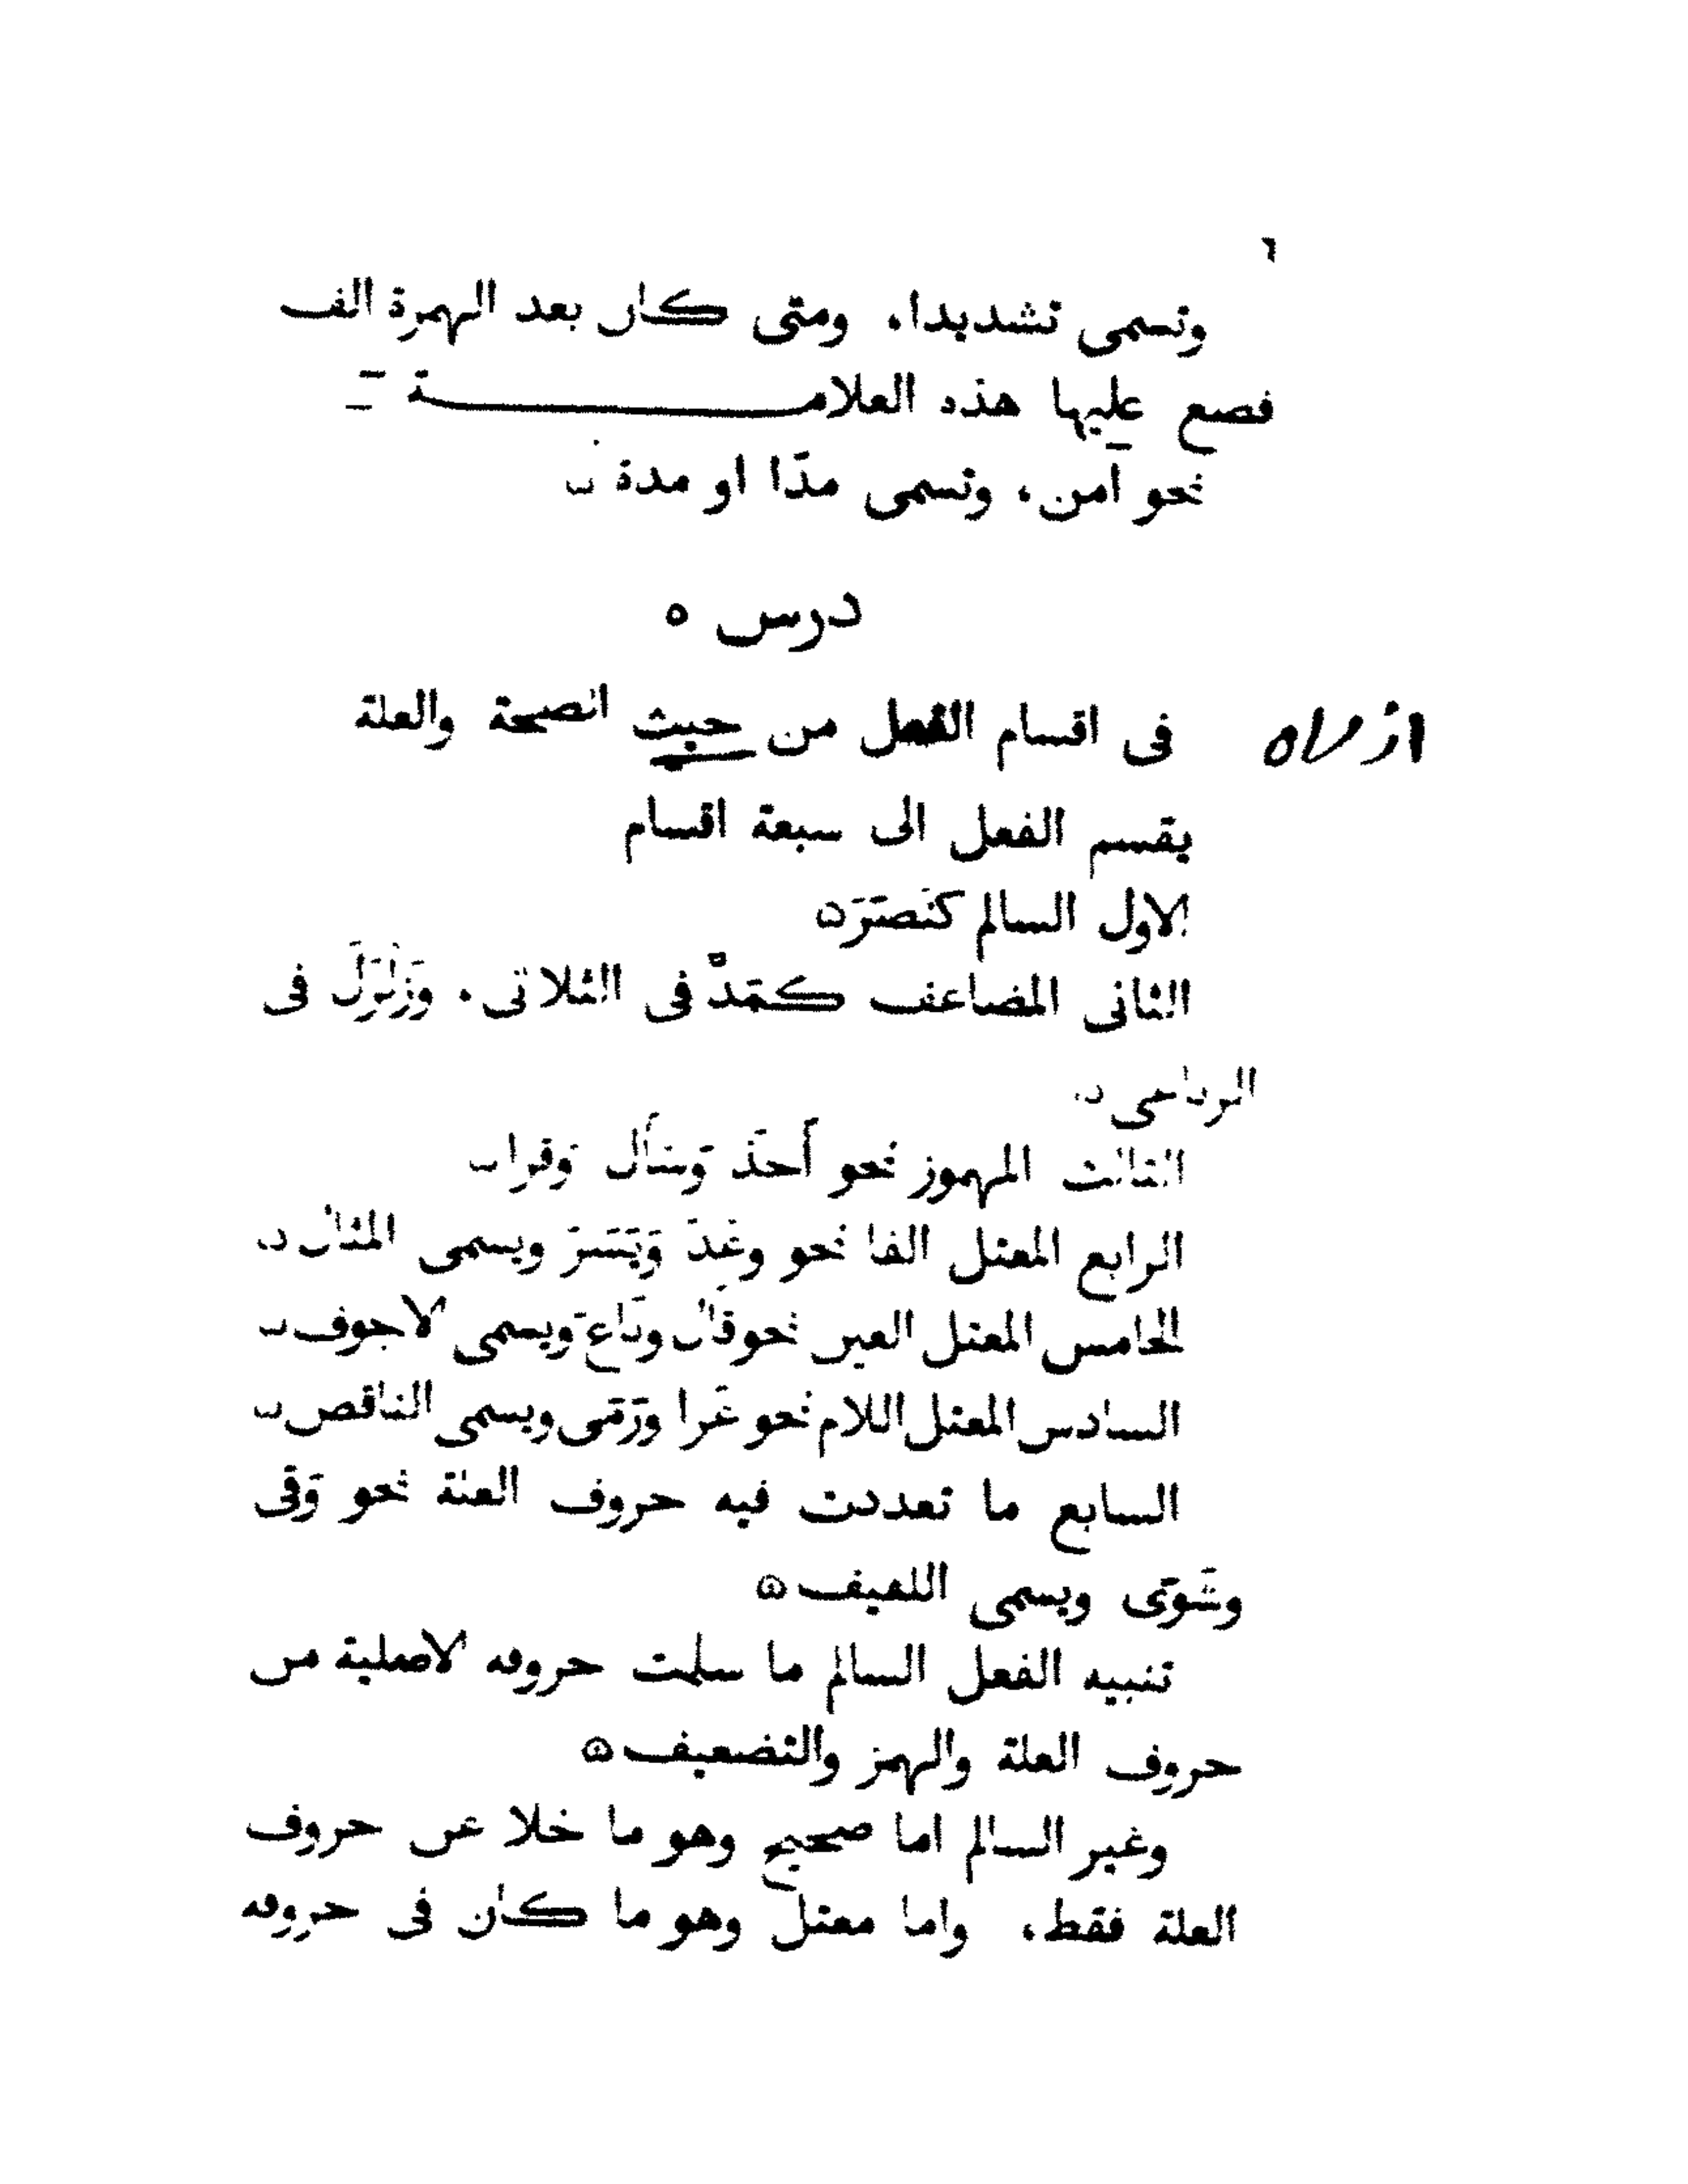 ٦
وتسمى تشديدا، ومتى كان بعد الهمزة الف
فضع عليها هذه العلامـــــــــة ـٓـ
نحو آمن، وتسمى مدّا او مدة
درس ٥
فى اقسام الفعل من حيث الصحة والعلة
يقسم الفعل الى سبعة اقسام
الاول السالم كنَصَرَ
الثانى المضاعف كمَدَّ فى الثلاثى. وَزَلزَلَ فى
الرباعى
الثالث المهموز نحو أَخَذَ وَسَأَل وَقرا
الرابع المعتل الفا نحو وعَدَ وَيَسَرَ ويسمى المثال
الخامس المعتل العين نحو قَال وبَاعَ ويسمى الاجوف
السادس المعتل اللام نحو غَزا ورَمَى ويسمى الناقص
السابع ما تعددت فيه حروف العلة نحو وَقى
وشَوَى ويسمى اللفيف
تنبيه الفعل السالم ما سلمت حروفه الاصلية من
حروف العلة والهمز والتضعيف
وغير السالم اما صحيح وهو ما خلا عن حروف
العلة فقط، واما معتل وهو ما كان فى حروفه